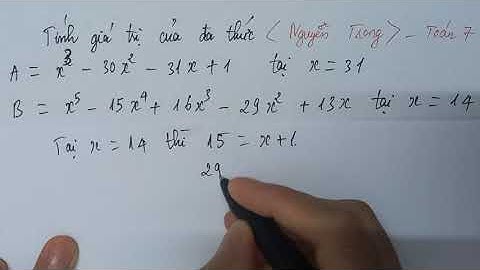 Tính giá trị của đa thức < Nguyễn Trang > - Toán 7
A = x³ - 30x² - 31x + 1 tại x = 31
B = x⁵ - 15x⁴ + 16x³ - 29x² + 13x tại x = 14
Tại x = 14 thì 15 = x + 1.
29